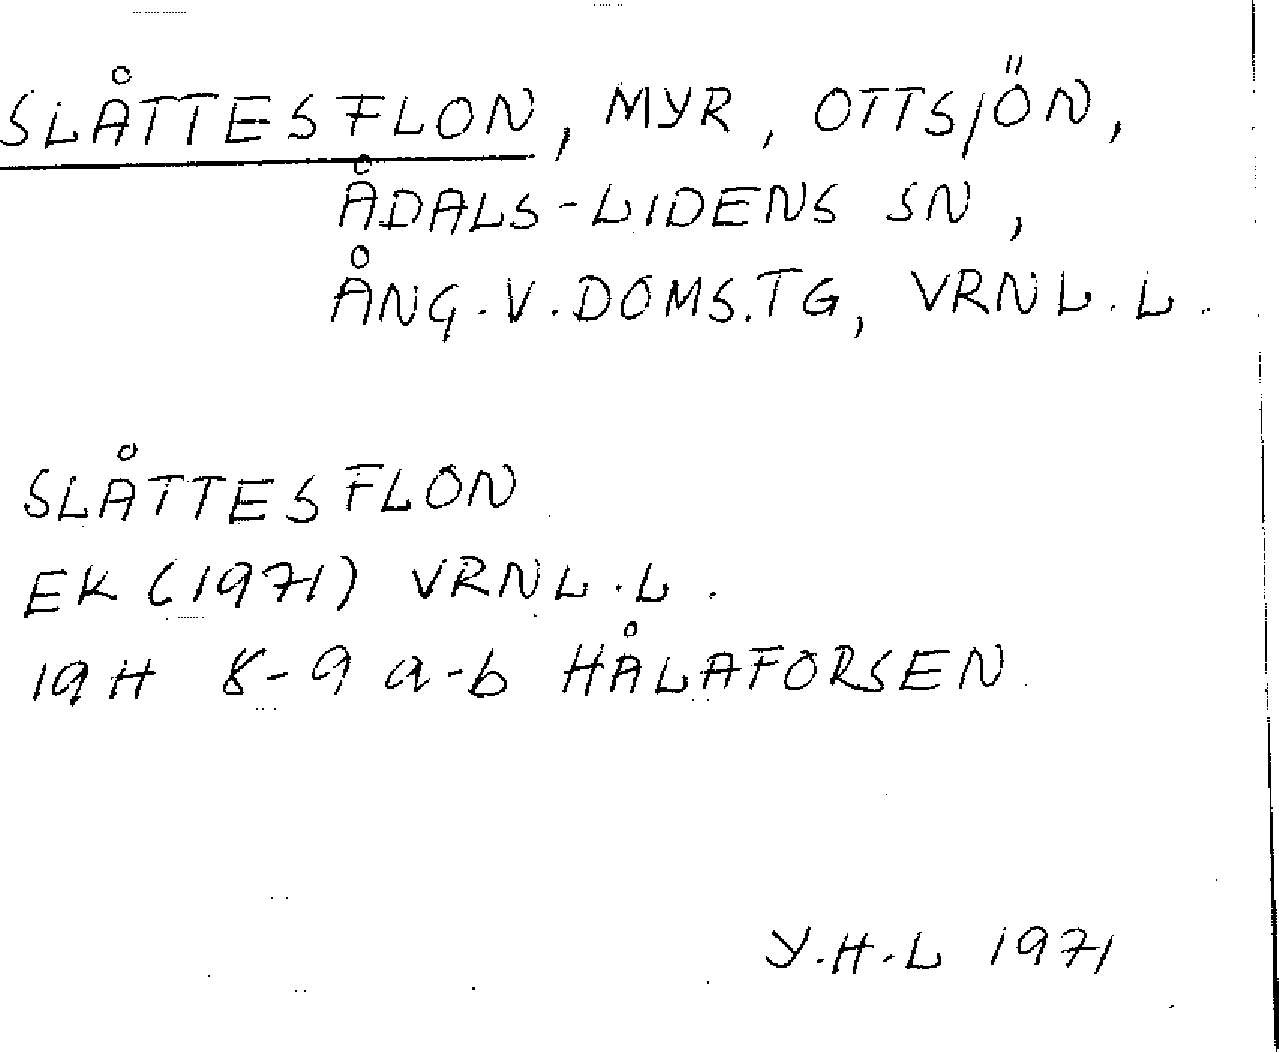 SLÅTTESFLON, MYR, OTTSJÖN,
ÅDALS-LIDENS SN,
ÅNG.V.DOMS.TG, VRNL.L.
SLÅTTESFLON
EK (1971) VRNL.L.
19H 8-9 a-b HÅLAFORSEN
Y.H.L 1971